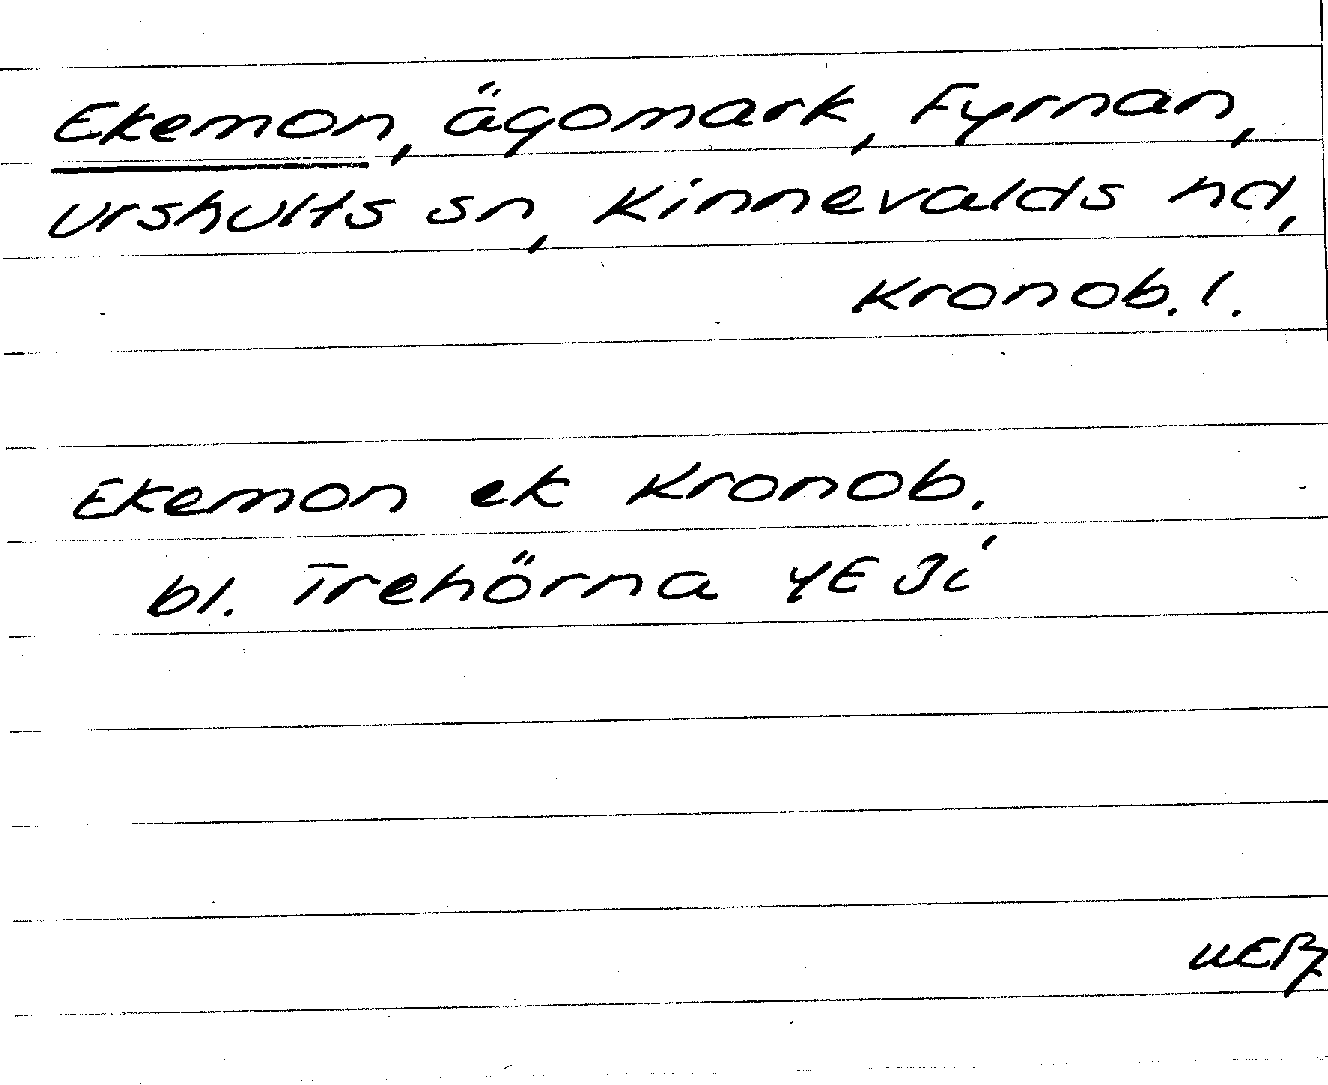 Ekemon, ägomark, Fyrnan,
Urshults sn, Kinnevalds hd,
Kronob. l.
Ekemon ek Kronob.
bl. Trehörna 4E 3i